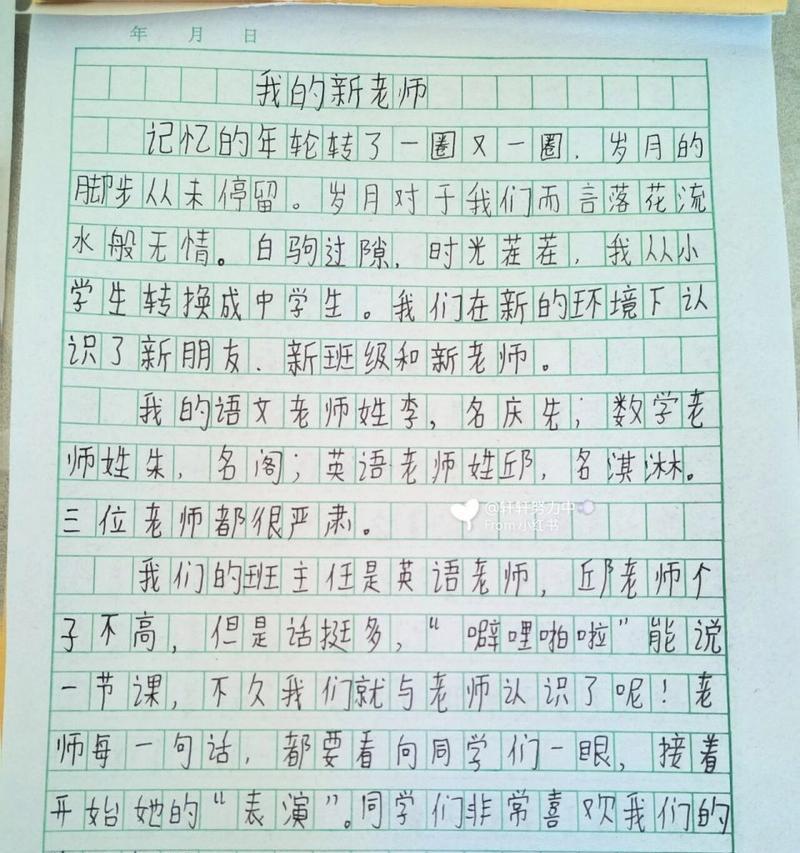 年 月 日
我的新老师
记忆的年轮转了一圈又一圈.岁月的
脚步从未停留。岁月对于我们而言落花流
水般无情。白驹过隙,时光茬茬,我从小
学生转换成中学生。我们在新的环境下认
识了新朋友、新班级和新老师。
我的语文老师姓李,名庆先;数学老
师姓朱,名阁;英语老师姓邱,名淇淋。
三位老师都很严肃。
@轩轩努力中
From小红书
我们的班主任是英语老师,邱老师个
子不高,但是话挺多,“噼哩啪啦”能说
一节课,不久我们就与老师认识了呢!老
师每一句话,都要看向同学们一眼,接着
开始她的“表演”。同学们非常喜欢我们的